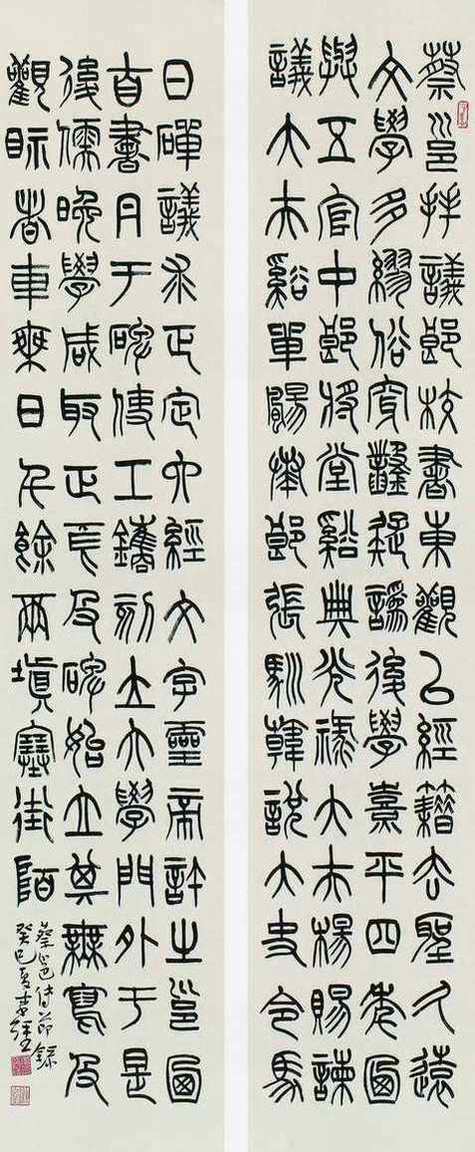 蔡邕拜議郎校書東觀以經籍去聖久遠
文學多繆俗穿鑿疑誤後學熹平四年廼
與五官中郎將堂谿典光祿大夫楊賜諫
議大夫谿單颺郎張馴韓說大史令馬
日磾議求正定六經文字靈帝許之邕廼
自書丹于碑使工鐫刻立大學門外于是
後儒晚學咸取正焉及碑始立其無寫及
觀眎者車乘日千餘兩填塞街陌
蔡邕傳節錄
癸巳夏